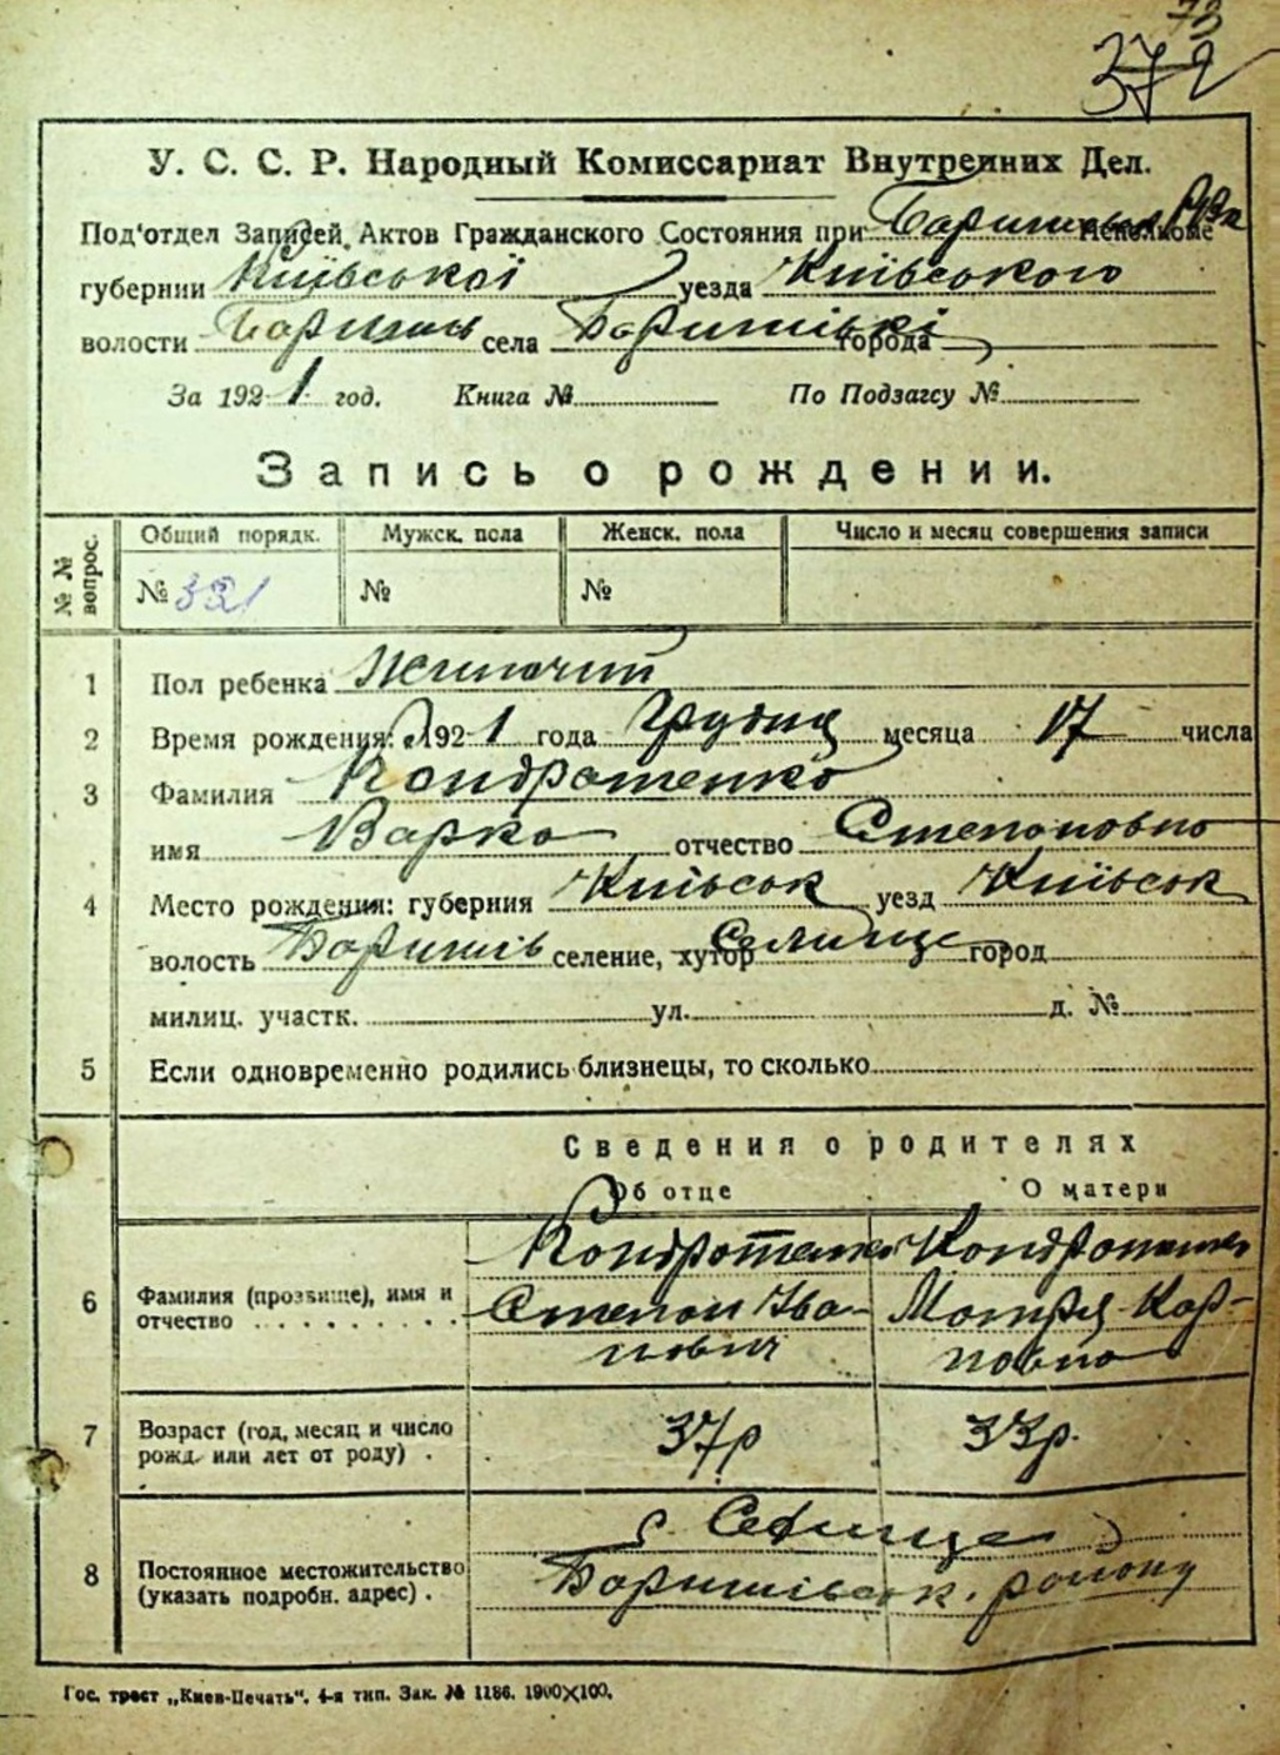 73
372
У. С. С. Р. Народный Комиссариат Внутренних Дел.
Под'отдел Записей Актов Гражданского Состояния при Исполкоме
губернии Київської уезда Київського
волости Баришів села Баришівкі города
За 1921 год. Книга № По Подзагсу №
Запись о рождении.
№ № вопрос. Общий порядк. Мужск. пола Женск. пола Число и месяц совершения записи
№ 321 № №
1 Пол ребенка Жиночий
2 Время рождения: 1921 года Грудня месяца 17 числа
3 Фамилия Кондратенко
имя Варка отчество Степановна
4 Место рождения: губерния Київськ уезд Київськ
волость Баришів селение, хутор Селище город
милиц. участк. ул. д. №
5 Если одновременно родились близнецы, то сколько
Сведения о родителях
Об отце О матери
6 Фамилия (прозвище), имя и отчество Кондратенко Степан Іванович Кондратенко Мотря Карповна
7 Возраст (год, месяц и число рожд. или лет от роду) 37р 33р.
8 Постоянное местожительство (указать подробн. адрес) с. Селище
Баришівськ. району
Гос. трест „Киев-Печать". 4-я тип. Зак. № 1186. 1900×100.